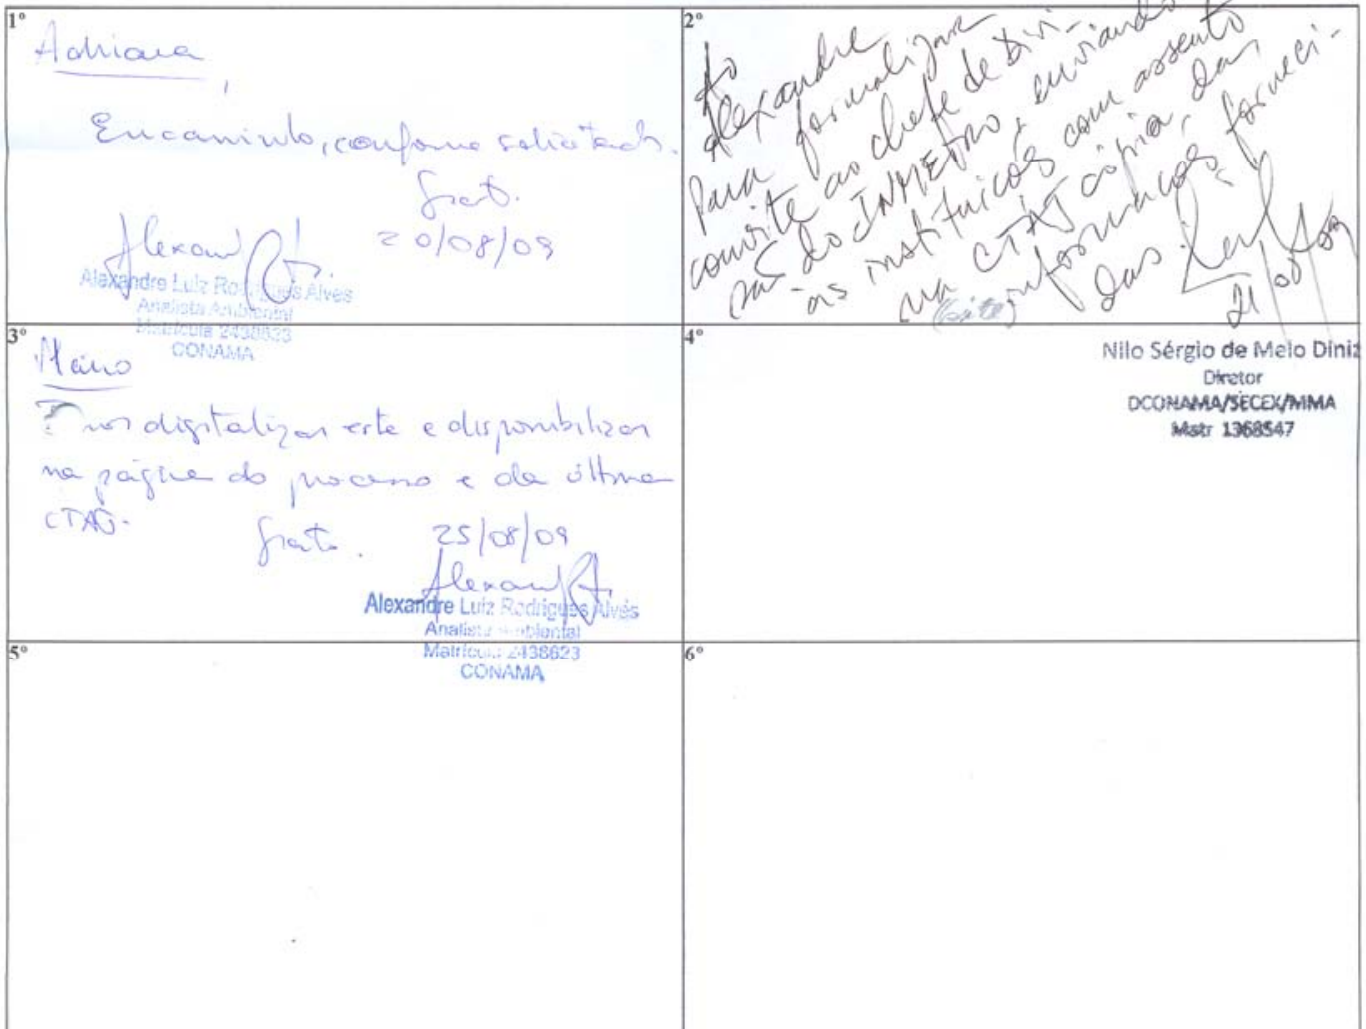 1°
Adriana,
Encaminho, conforme solicitado.
Grato.
20/08/09
Alexandre Luiz Rodrigues Alves
Analista Ambiental
Matrícula 2438623
CONAMA
2°
Ao
Alexandre
Para formalizar
convite ao chefe de Divi-
são do INMETRO, enviando
às instituições com assento
na CTAJ cópia das
informações forneci-
das
21/08/09
Nilo Sérgio de Melo Diniz
Diretor
DCONAMA/SECEX/MMA
Matr 1368547
3°
digitalizar este e disponibilizar
na página do processo e da última
CTAJ.
Grato.
25/08/09
Alexandre Luiz Rodrigues Alves
Analista Ambiental
Matrícula 2438623
CONAMA
4°
5°
6°